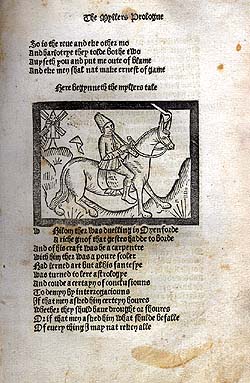 The Myllers Prologue
So is the reue and eke other mo
And harlotrye they tolde bothe two
Auyseth you and put me oute of blame
And eke men shal nat make ernest of game
Here begynneth the myllers tale
Whilom ther was duelling in Oxenforde
A riche gnof that gestes hadde to borde
And of his craft was he a carpenter
With him ther was a poure scoler
Had lerned art but al his fantesye
Was turned to lere astrologye
And coude a certayn of conclusiouns
To demen by interrogaciouns
If that men asked him certeyn houres
Whether they shuld haue drought or shoures
Or if that men asked him what shulde befalle
Of euery thing I may nat reken alle